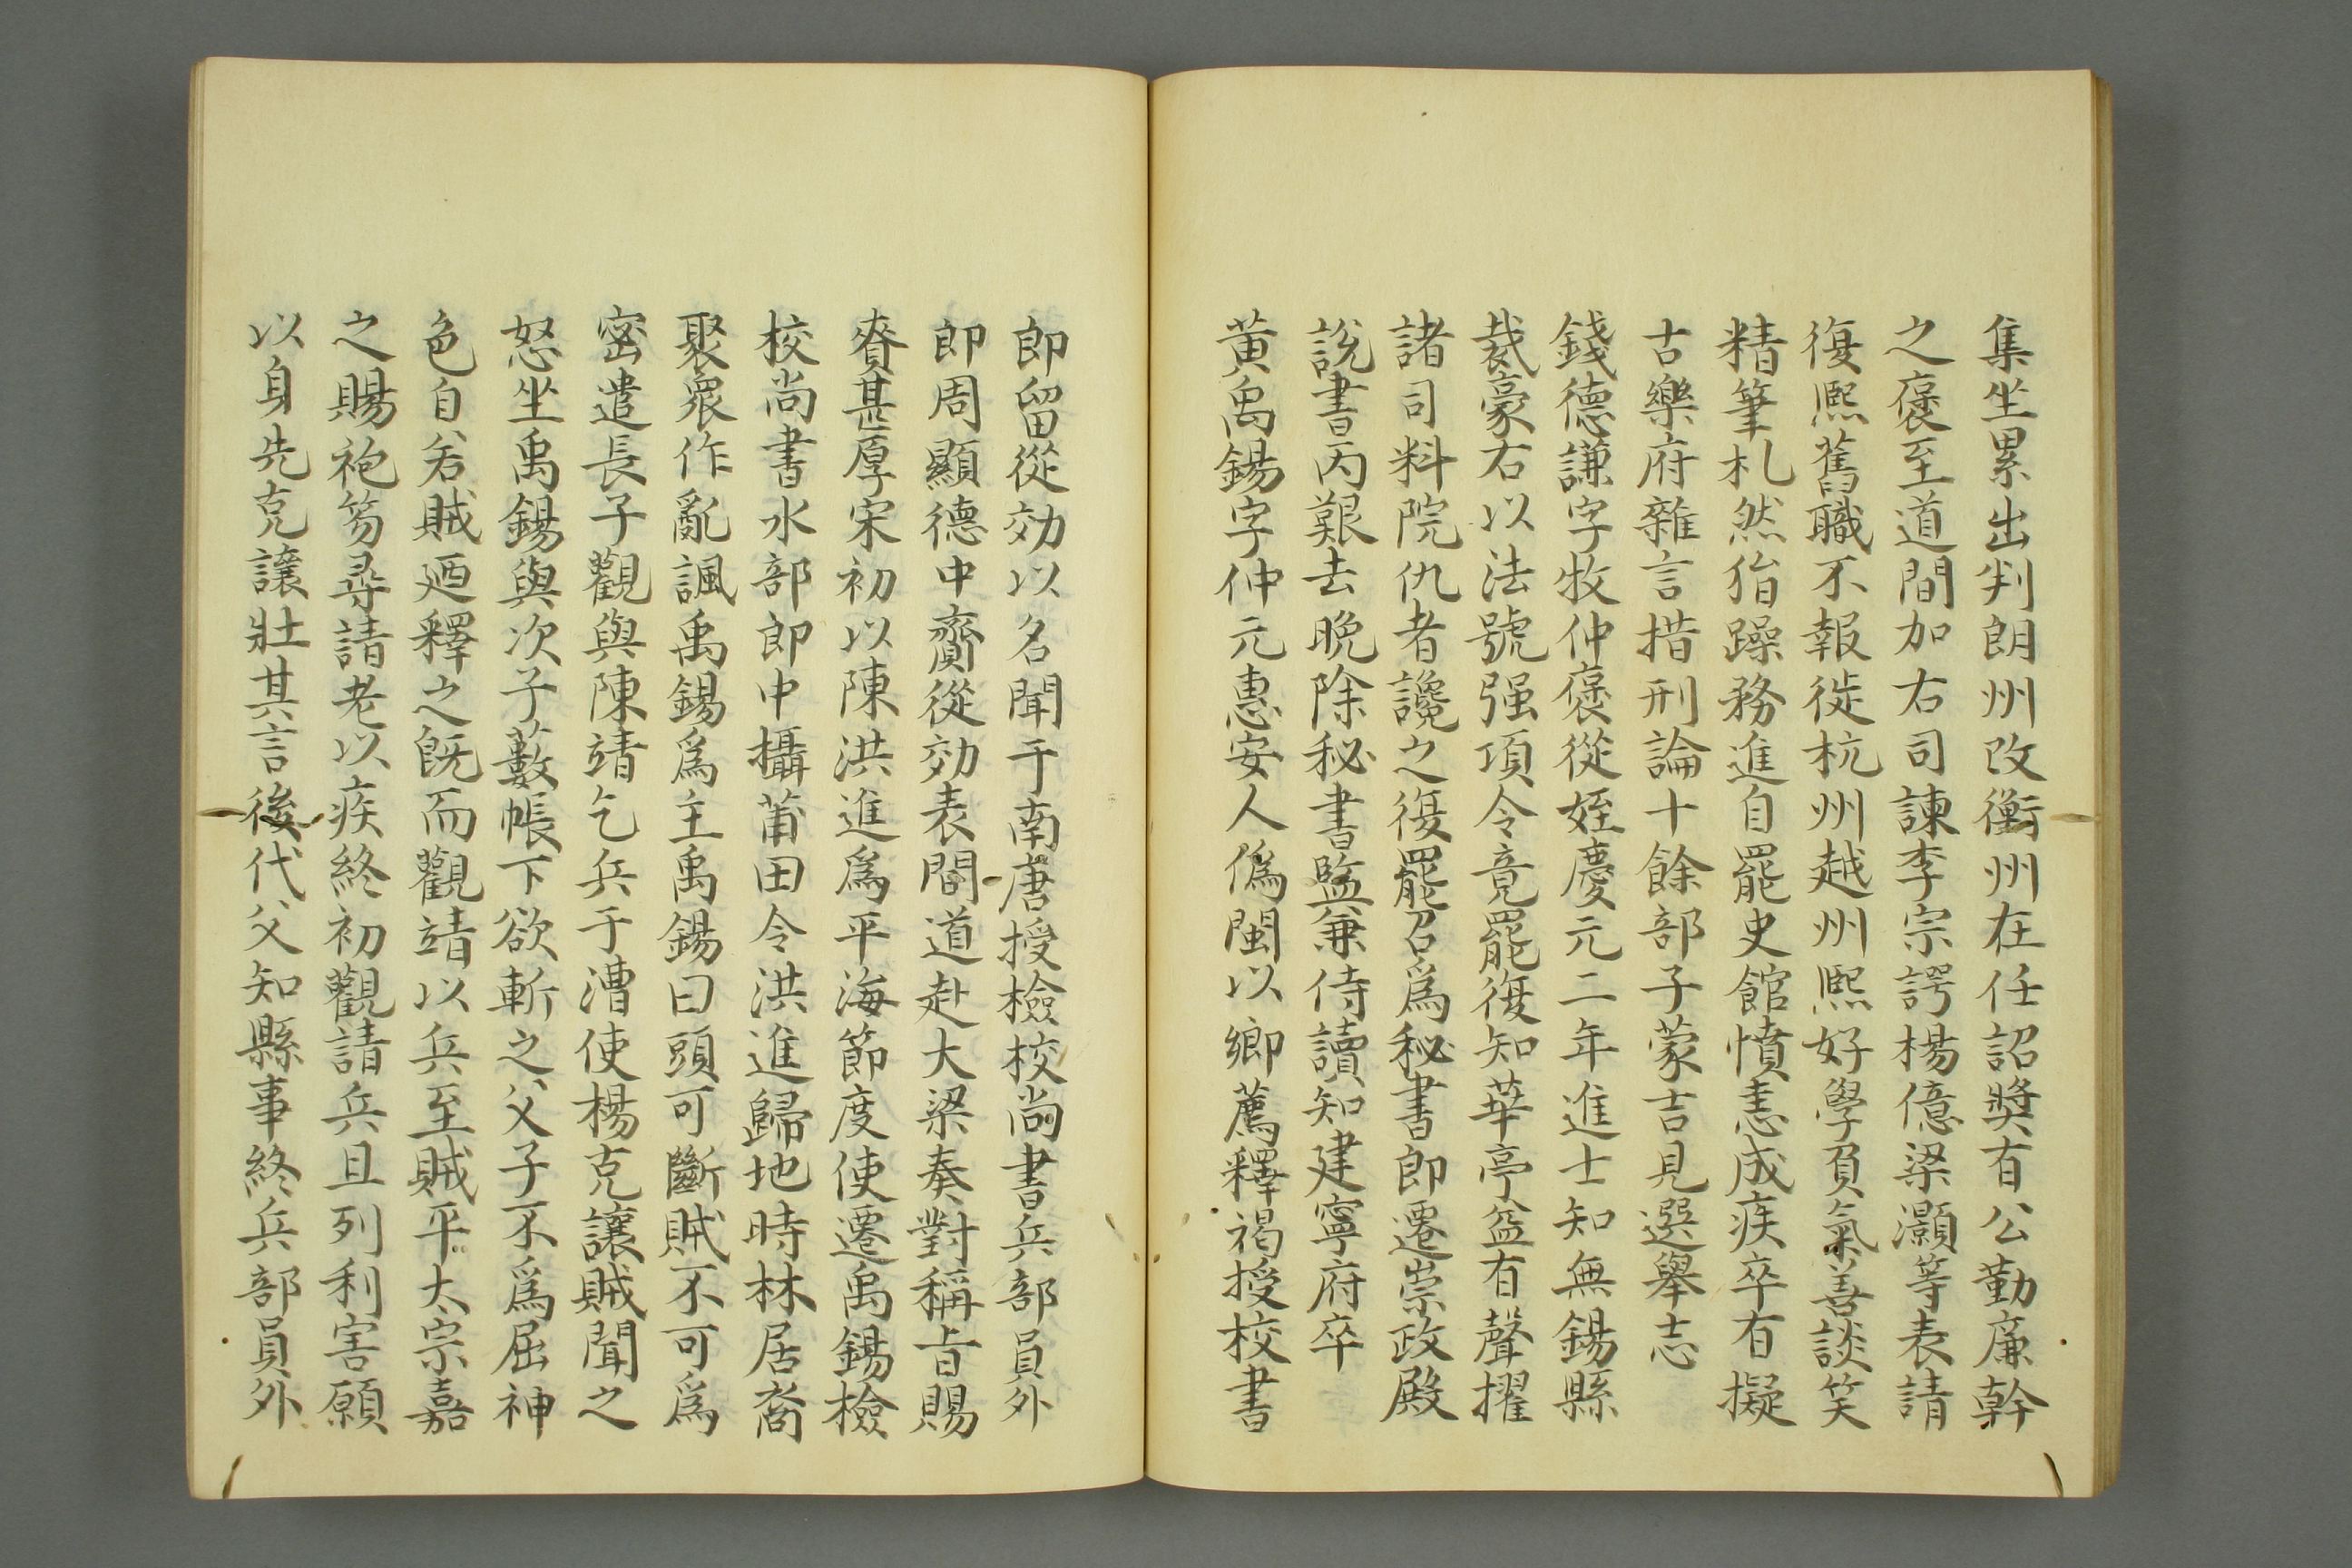 集坐累出判朗州改衡州在任詔奬有公勤廉幹
之褒至道間加右司諫李宗諤楊億梁灝等表請
復熙舊職不報徙杭州越州熙好學負氣善談笑
精筆札然狥躁務進自罷史館憤恚成疾卒有擬
古樂府雜言措刑論十餘部子蒙吉見選舉志
錢德謙字牧仲褒從姪慶元二年進士知無錫縣
裁豪右以法號强項令竟罷復知華亭益有聲擢
諸司料院仇者讒之復罷召爲秘書郎遷崇政殿
說書丙艱去晚除秘書監兼侍讀知建寧府卒
黃禹錫字仲元惠安人僞閩以鄉薦釋褐授校書
郎留從効以名聞于南唐授檢校尚書兵部員外
郎周顯德中齎從効表間道赴大梁奏對稱旨賜
賚甚厚宋初以陳洪進爲平海節度使遷禹錫檢
校尚書水部郎中攝莆田令洪進歸地時林居裔
聚衆作亂諷禹錫爲主禹錫曰頭可斷賊不可爲
密遣長子觀與陳靖乞兵于漕使楊克讓賊聞之
怒坐禹錫與次子藪帳下欲斬之父子不爲屈神
色自若賊廼釋之旣而觀靖以兵至賊平太宗嘉
之賜袍笏尋請老以疾終初觀請兵且列利害願
以身先克讓壯其言後代父知縣事終兵部員外